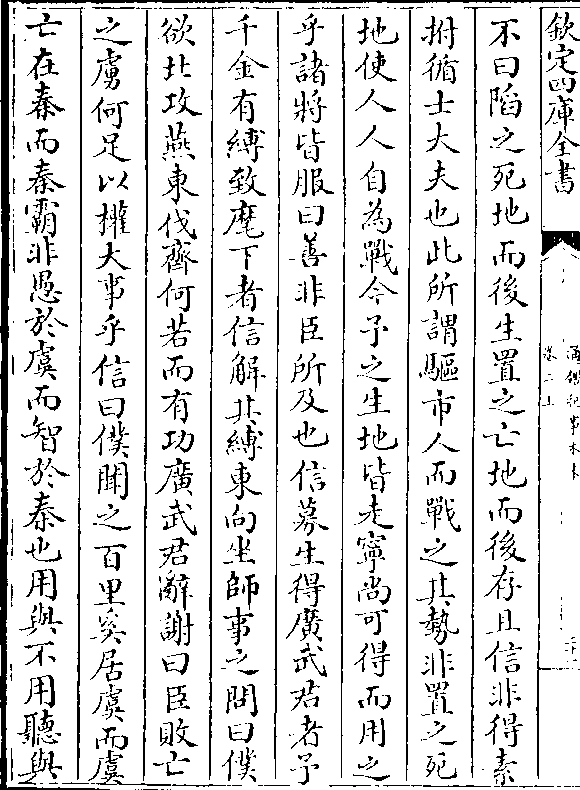 欽定四庫全書
通鑑紀事本末
卷二上
不曰陷之死地而後生置之亡地而後存且信非得素
拊循士大夫也此所謂驅市人而戰之其勢非置之死
地使人人自為戰今予之生地皆走寧尚可得而用之
乎諸將皆服曰善非臣所及也信募生得廣武君者予
千金有縛致麾下者信解其縛東向坐師事之問曰僕
欲北攻燕東伐齊何若而有功廣武君辭謝曰臣敗亡
之虜何足以權大事乎信曰僕聞之百里奚居虞而虞
亡在秦而秦霸非愚於虞而智於秦也用與不用聽與